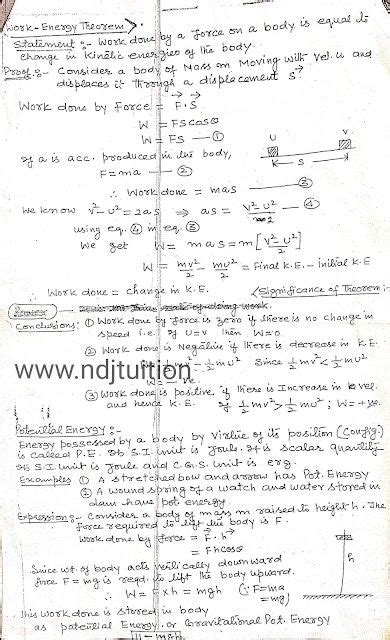 Work-Energy Theorem :-
Statement :- Work done by a force on a body is equal to
change in kinetic energies of the body.
Proof :- Consider a body of Mass m Moving with vel. u and
displaces it through a displacement S.
Work done by Force = F.S
W = FScosθ
W = FS —①
If a is acc. produced in the body,
F = ma —②
∴ Work done = mas —③
U V
S
We know V²-U² = 2as ⇒ as = V²-U²/2 —④
using eq. ④ in eq. ③
We get W = mas = m[V²-U²/2]
W = mv²/2 - mu²/2 = Final K.E. - initial K.E
Work done = change in K.E.
Significance of Theorem :-
Power
Conclusions : ① Work done by force is zero if there is no change in
speed i.e. if U=V then W=0.
② Work done is Negative if there is decrease in K.E.
½mv² - ½mu² Since ½mv² < ½mu²
W = -ve
www.ndjtuition
③ Work done is positive if there is Increase in vel.
and hence K.E. if ½mv² > ½mu² ; W = +ve.
Potential Energy :-
Energy possessed by a body by Virtue of its position (Config.)
is called P.E. Its S.I. unit is Joule. It is scalar quantity
Its S.I unit is Joule and C.G.S. unit is erg.
Examples ① A stretched bow and arrow has Pot. Energy
② A wound spring of a watch and water stored in
dam have pot. energy
Expression :- Consider a body of mass m raised to height h. The
force required to lift the body is F.
Work done by force = F.h
= Fhcosθ
h
Since wt. of body acts vertically downward
force F = mg is reqd. to lift the body upward.
∴ W = F x h = mgh (∵ F = ma = mg)
This work done is stored in body
as potential Energy or Gravitational Pot. Energy
U = mgh